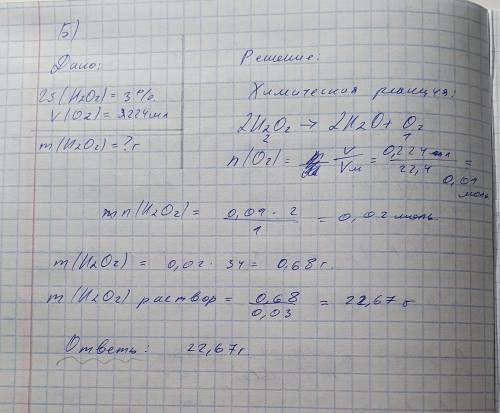 Б)
Дано:
Решение:
ω(H₂O₂) = 3%
V(O₂) = 224мл
m(H₂O₂) = ? г
Химическая реакция:
2H₂O₂ → 2H₂O + O₂
2 1
n(O₂) = V/Vм = 0,224 мл/22,4 = 0,01 моль
m n(H₂O₂) = 0,01 · 2/1 = 0,02 моль.
m(H₂O₂) = 0,02 · 34 = 0,68 г.
m(H₂O₂) раствор = 0,68/0,03 = 22,67 г
Ответь: 22,67г